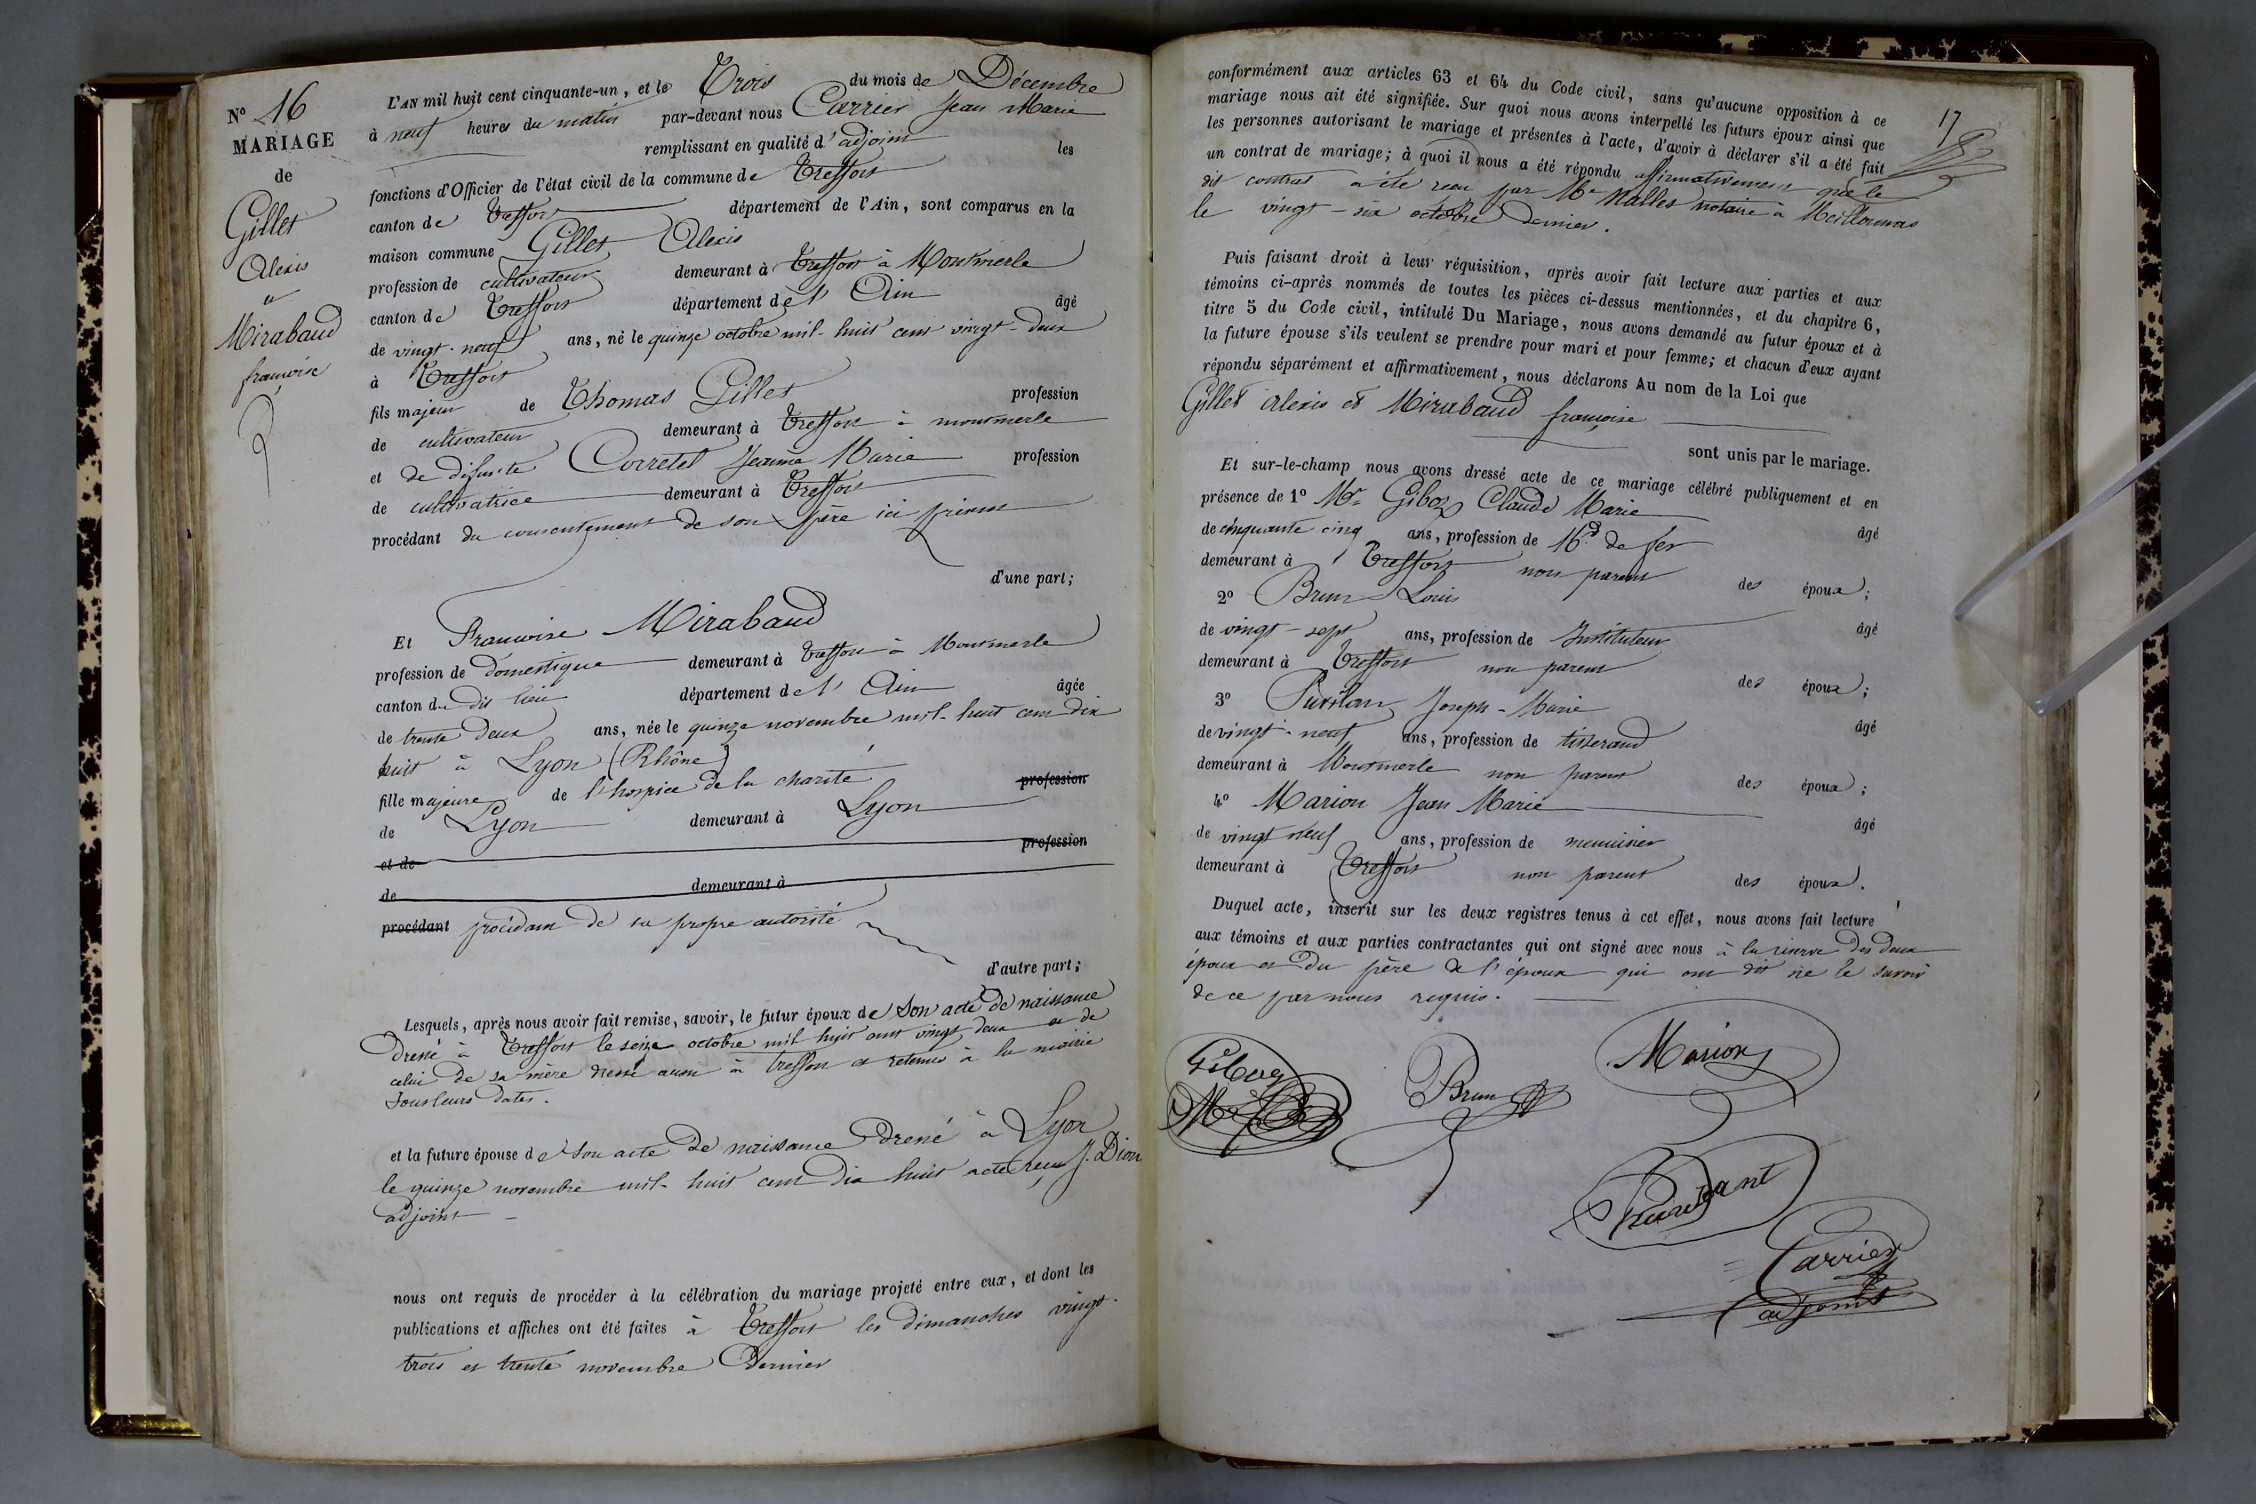 N.o 16
MARIAGE
de
Gillet
Alexis
et
Mirabaud
françoise
L'AN mil huit cent cinquante-un, et le Trois du mois de Décembre
à neuf heures du matin par-devant nous Carrier Jean Marie
remplissant en qualité d'adjoint les
fonctions d'Officier de l'état civil de la commune de Treffort
canton de Treffort département de l'Ain, sont comparus en la
maison commune Gillet Alexis
profession de cultivateur demeurant à Treffort à Montmerle
canton de Treffort département de l'Ain âgé
de vingt-neuf ans, né le quinze octobre mil-huit cent vingt-deux
à Treffort
fils majeur de Thomas Gillet profession
de cultivateur demeurant à Treffort à montmerle
et de défunte Corretel Jeanne Marie profession
de cultivatrice demeurant à Treffort
procédant du consentement de son père ici présent
d'une part;
Et Françoise Mirabaud
profession de domestique demeurant à Treffort à Montmerle
canton du dit lieu département de l'Ain âgée
de trente deux ans, née le quinze novembre mil-huit cent dix
huit à Lyon (Rhône)
fille majeure de l'hospice de la charité profession
de Lyon demeurant à Lyon
et de profession
de demeurant à
procédant procédant de sa propre autorité
d'autre part;
Lesquels, après nous avoir fait remise, savoir, le futur époux de Son acte de naissance
dressé à Treffort le seize octobre mil huit cent vingt deux et de
celui de sa mère dressé aussi à treffort et retenus à la mairie
sous leurs dates.
et la future épouse de son acte de naissance dressé à Lyon
le quinze novembre mil-huit cent dix huit acte reçu J. Dion
adjoint
nous ont requis de procéder à la célébration du mariage projeté entre eux, et dont les
publications et affiches ont été faites à Treffort les dimanches vingt-
trois et trente novembre dernier
17
conformément aux articles 63 et 64 du Code civil, sans qu'aucune opposition à ce
mariage nous ait été signifiée. Sur quoi nous avons interpellé les futurs époux ainsi que
les personnes autorisant le mariage et présentes à l'acte, d'avoir à déclarer s'il a été fait
un contrat de mariage; à quoi il nous a été répondu affirmativement que le
dit contrat a été reçu par Me Nallet notaire à Meillonnas
le vingt-six octobre dernier.
Puis faisant droit à leur réquisition, après avoir fait lecture aux parties et aux
témoins ci-après nommés de toutes les pièces ci-dessus mentionnées, et du chapitre 6,
titre 5 du Code civil, intitulé Du Mariage, nous avons demandé au futur époux et à
la future épouse s'ils veulent se prendre pour mari et pour femme; et chacun d'eux ayant
répondu séparément et affirmativement, nous déclarons Au nom de la Loi que
Gillet Alexis et Mirabaud françoise
sont unis par le mariage.
Et sur-le-champ nous avons dressé acte de ce mariage célébré publiquement et en
présence de 1o Mr Giboz Claude Marie âgé
de cinquante cinq ans, profession de Md de fer
demeurant à Treffort non parent des époux;
2o Brun Louis âgé
de vingt-sept ans, profession de Instituteur
demeurant à Treffort non parent des époux;
3o Joseph-Marie âgé
de vingt-neuf ans, profession de tisserand
demeurant à Montmerle non parent des époux;
4o Marion Jean Marie âgé
de vingt neuf ans, profession de menuisier
demeurant à Treffort non parent des époux.
Duquel acte, inscrit sur les deux registres tenus à cet effet, nous avons fait lecture
aux témoins et aux parties contractantes qui ont signé avec nous à la réserve des deux
époux et du père de l'époux qui ont dit ne le savoir
de ce par nous requis.
Giboz
Brun
Marion
Carrier
adjoint